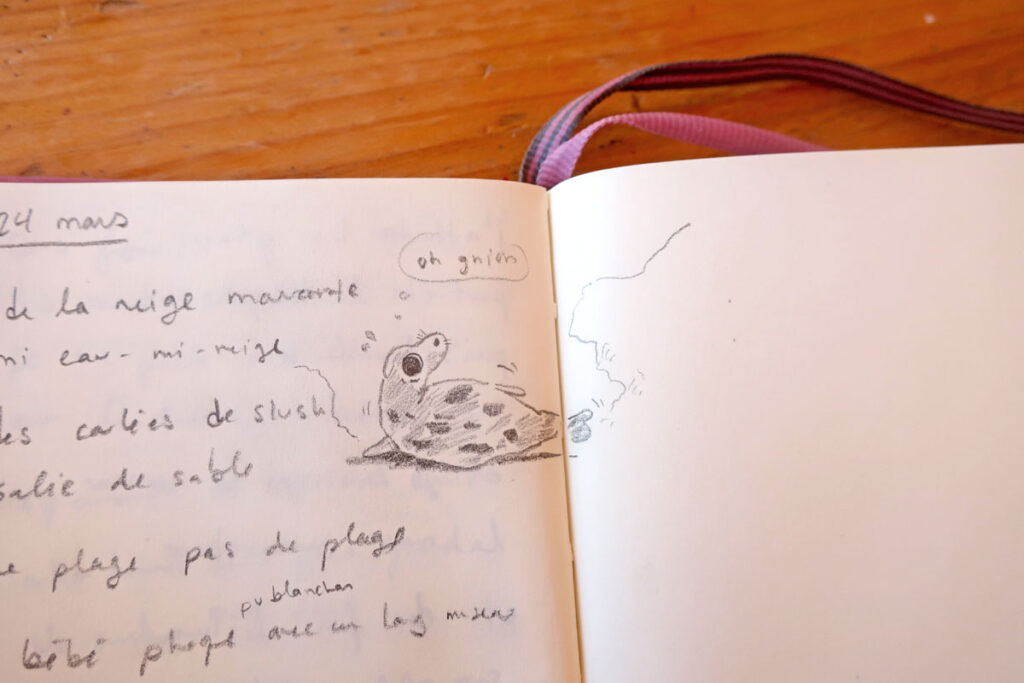 24 mars
de la neige mourante
oh gnion
mi eau-mi-neige
des carlées de slush
salie de sable
plage pas de plage
pu blanchon
bébé phoque avec un